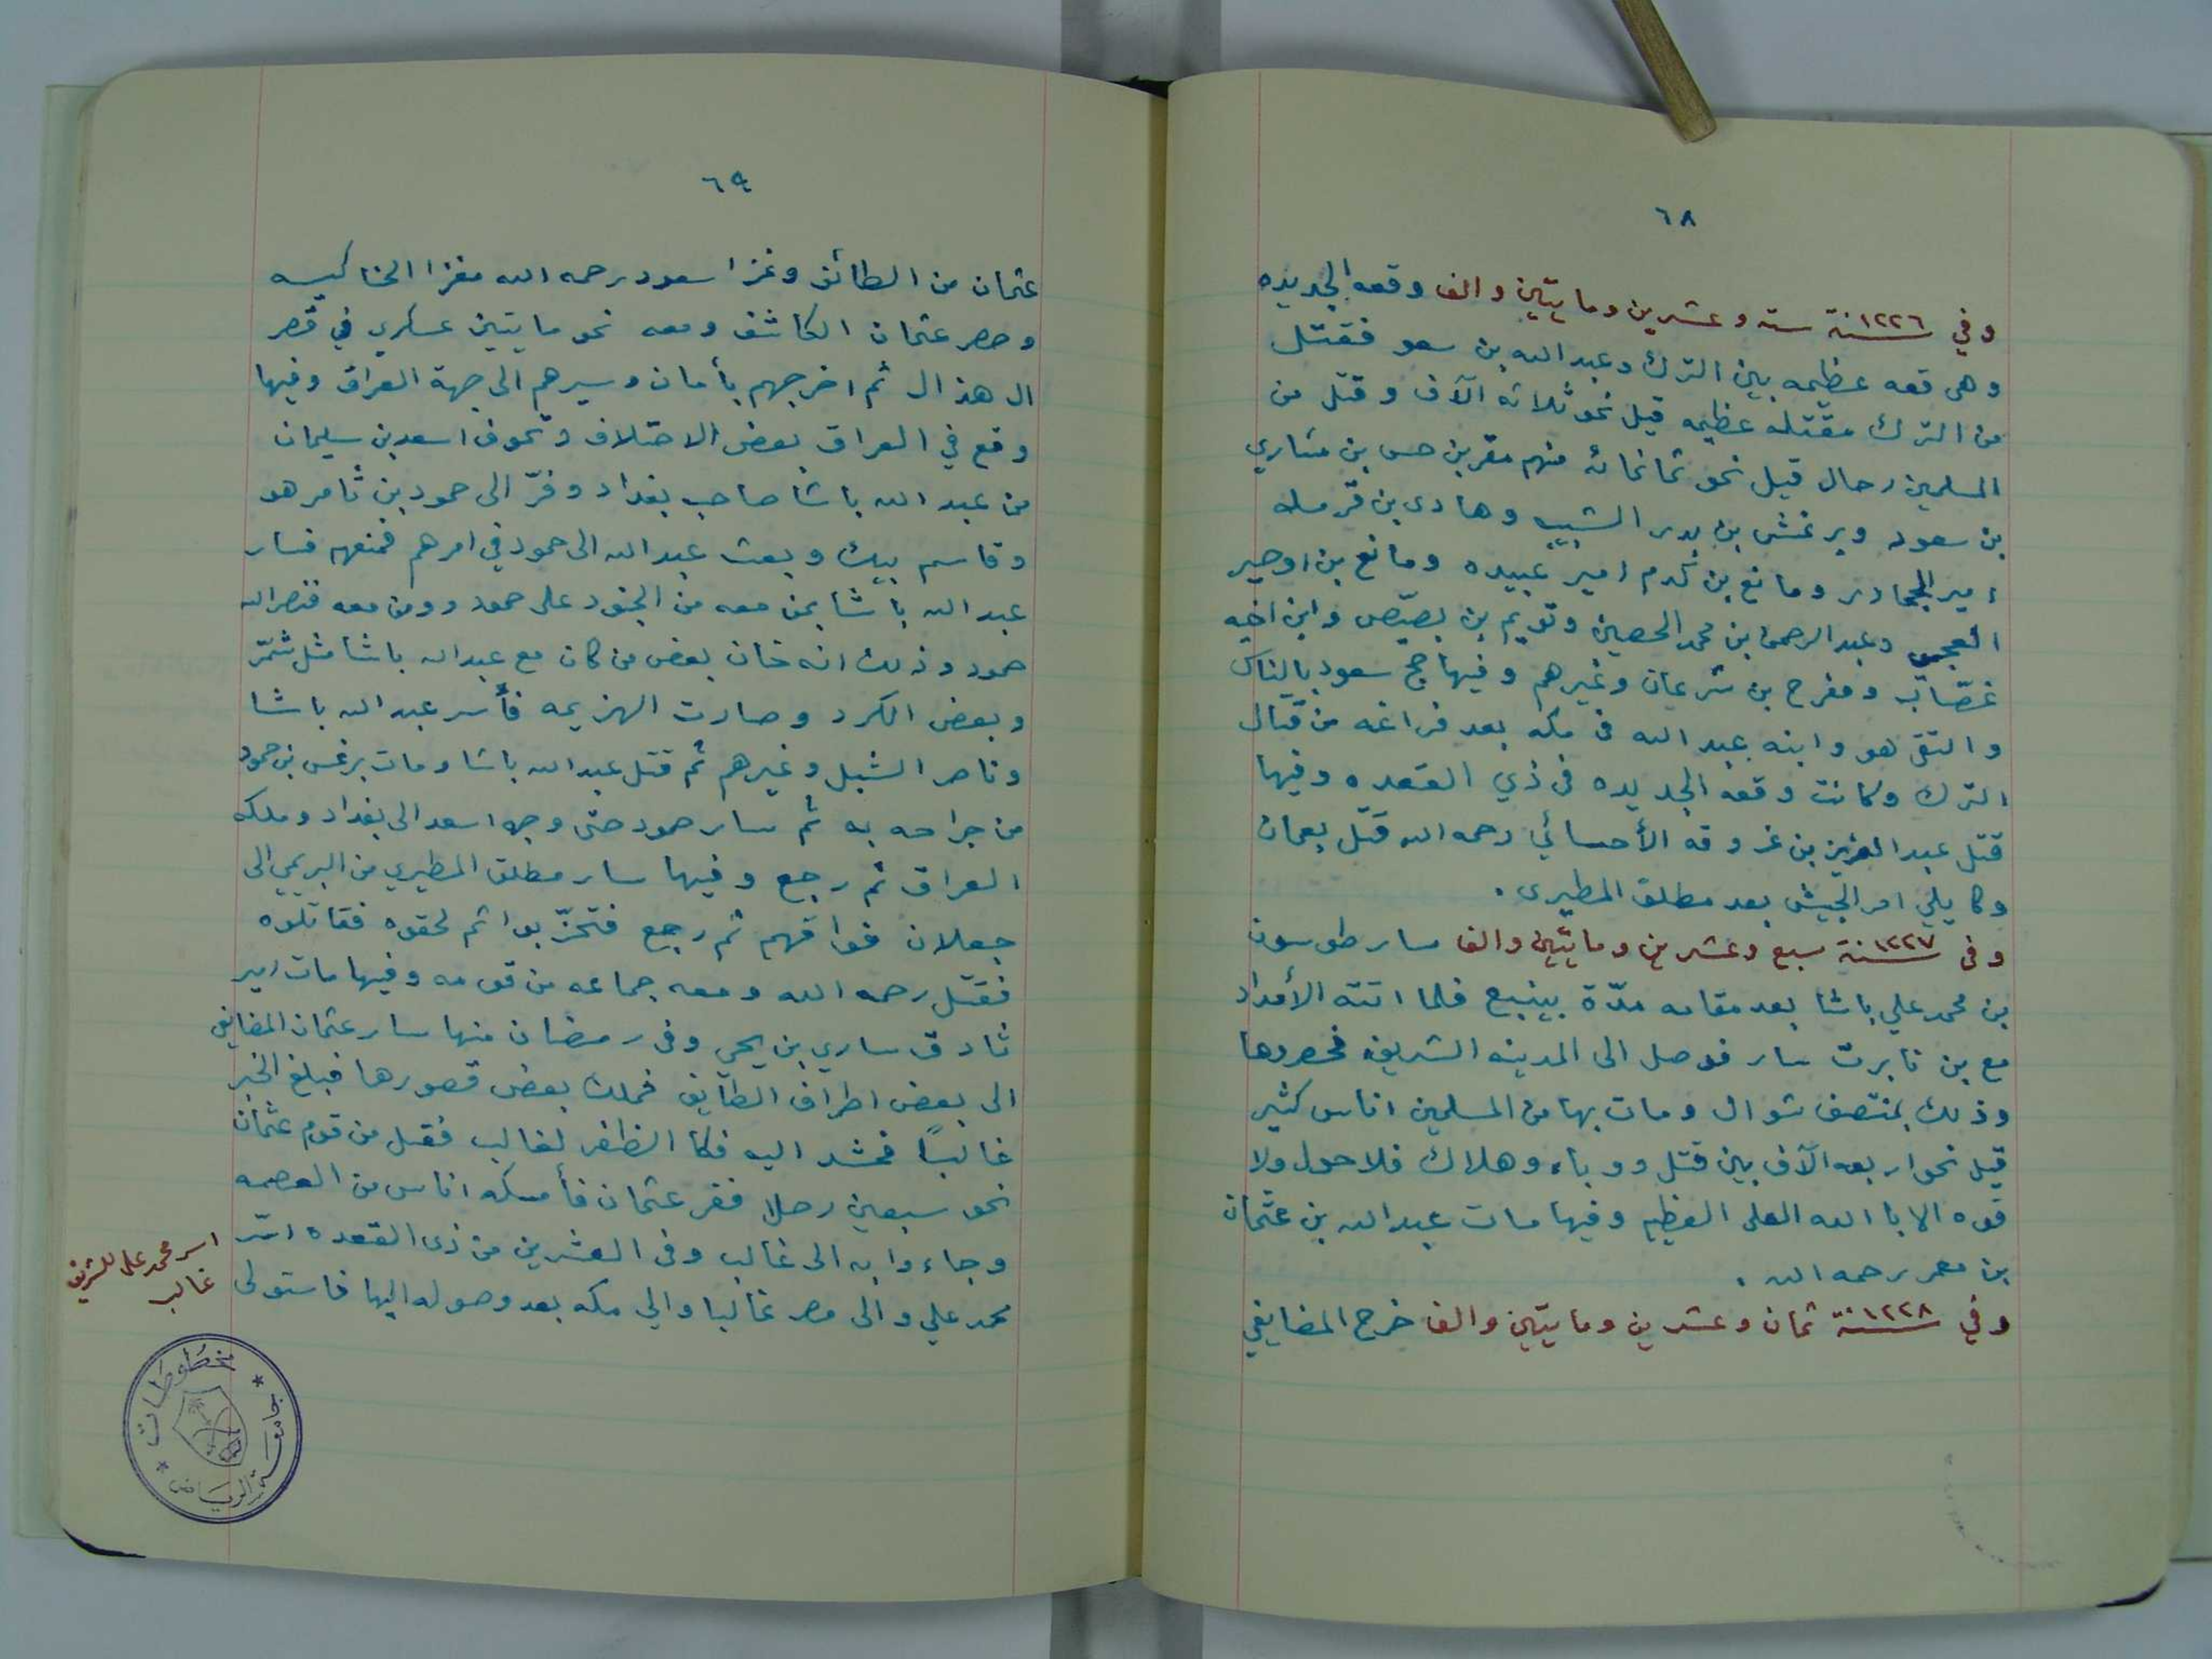 ٦٨
وفي ١٢٢٦سنة سته وعشرين ومايتين والف وقعه الجديده
وهي قعه عظيمه بين الترك وعبدالله بن سعو فقتل
من الترك مقتله عظيمه قيل نحو ثلاثه آلآف وقتل من
المسلمين رجال قيل نحو ثمانمائه منهم مقرن بن حسن بن مشاري
بن سعود وبرغش بن بدر الشبيب وهادي بن قرمله
امير الجحادر ومانع بن كدم امير عبيده ومانع بن اوحير
العجمي وعبدالرحمن بن محمد الحصين وتويم بن بصيّص وابن اخيه
غصّاب ومفرح بن شرعان وغيرهم وفيها حج سعود بالناس
والتقى هو وابنه عبدالله في مكه بعد فراغه من قتال
الترك وكانت وقعه الجديده في ذي القعده وفيها
قتل عبدالعزيز بن غردقه الأحسائي رحمه الله قتل بعمان
وكا يلي امر الجيش بعد مطلق المطيري .
وفي ١٢٢٧سنة سبع وعشرين ومايتين والف سار طوسون
بن محمد علي باشا بعد مقامه مدّة بينبع فلما اتته الأمداد
مع بن نابرت سار فوصل الى المدينه الشريفه فحصروها
وذلك بمنتصف شوال ومات بها من المسلمين اناس كثير
قيل نحو اربعه آلآف بين قتل ووباء وهلاك فلا حول ولا
قوه الا باالله العلي العظيم وفيها مات عبدالله بن عثمان
بن معمر رحمه الله .
وفي ١٢٢٨سنة ثمان وعشرين ومايتين والف خرج المضايفي
٦٩
عثمان من الطائف وغزا سعود رحمه الله مغزا الحناكيه
وحصر عثمان الكاشف ومعه نحو مايتين عسكري في قصر
ال هذال ثم اخرجهم بأمان وسيرهم الى جهة العراق وفيها
وقع في العراق بعض الاختلاف وتخوف اسعد بن سليمان
من عبدالله باشا صاحب بغداد وفرّ الى حمود بن ثامر هو
وقاسم بيك وبعث عبدالله الى حمود في امرهم فمنعهم فسار
عبدالله باشا بمن معه من الجنود على حمود ومن معه فنصرالله
حمود وذلك انه خان بعض من كان مع عبدالله باشا مثل شمّر
وبعض الكرد وصارت الهزيمه فأسر عبدالله باشا
وناصر الشبلي وغيرهم ثم قتل عبدالله باشا ومات برغس بن حمود
من جراحه به ثم سار حمود حتى وجه اسعد الى بغداد وملكه
العراق ثم رجع وفيها سار مطلق المطيري من البريمي الى
جعلان فواقهم ثم رجع فتحزّبوا ثم لحقوه فقاتلوه
فقتل رحمه الله ومعه جماعه من قومه وفيها مات امير
ثادق ساري بن يحي وفي رمضان منها سار عثمان المضايفي
الى بعض اطراف الطايف فملك بعض قصورها فبلغ الخبر
غالباً فحشد اليه فكا الظفر لغالب فقتل من قوم عثمان
نحو سبعين رجلا ففر عثمان فأمسكه اناس من العصمه
وجاءوا به الى غالب وفي العشرين من ذي القعده اسر
محمد علي والى مصر غالبا والي مكه بعد وصوله اليها فاستولى
اسر محمد علي للشريف
غالب
مخطوطات
جامعة الرياض